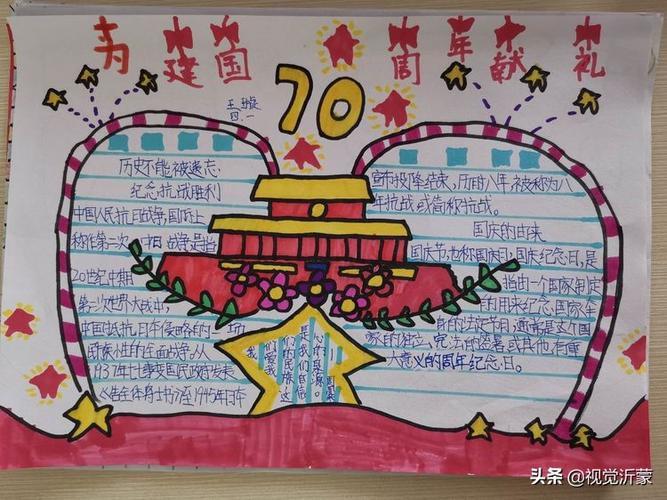 为建国70周年献礼
四.一
历史不能被遗忘
纪念抗战胜利
中国人民抗日战争,国际上
称作第二次中日战争,是指
20世纪中期
第二次世界大战中,
中国抵抗日军侵略的一场
民族性的全面战争,从
1937年七七事变国民政府发表
《告全体将士书》至1945年日本
宣布投降结束,历时八年,被称为八
年抗战,或简称抗战。
国庆的由来
国庆节,也称国庆日、国庆纪念日,是
指由一个国家制定
的用来纪念国家本
身的法定节日,通常是这个国
家的独立、宪法的签署,或其他有重
大意义的周年纪念日。
头条 @视觉沂蒙